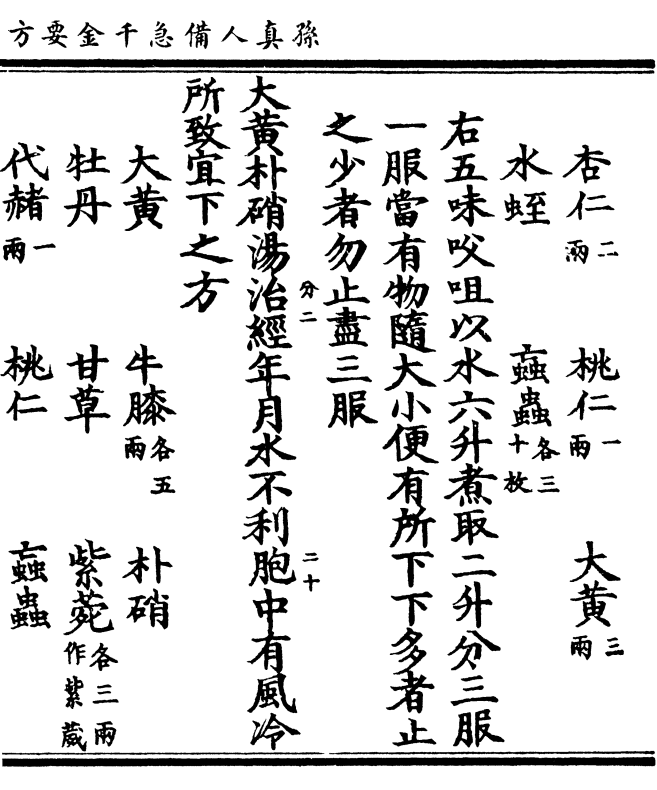 孫真人備急千金要方
杏仁二兩 桃仁一兩 大黃三兩
水蛭 䖟蟲各三十枚
右五味㕮咀以水六升煮取二升分三服
一服當有物隨大小便有所下下多者止
之少者勿止盡三服
分二 二十
大黃朴硝湯治經年月水不利胞中有風冷
所致宜下之方
大黃 牛膝各五兩 朴硝
牡丹 甘草 紫菀各三兩作紫葳
代赭一兩 桃仁 䖟蟲